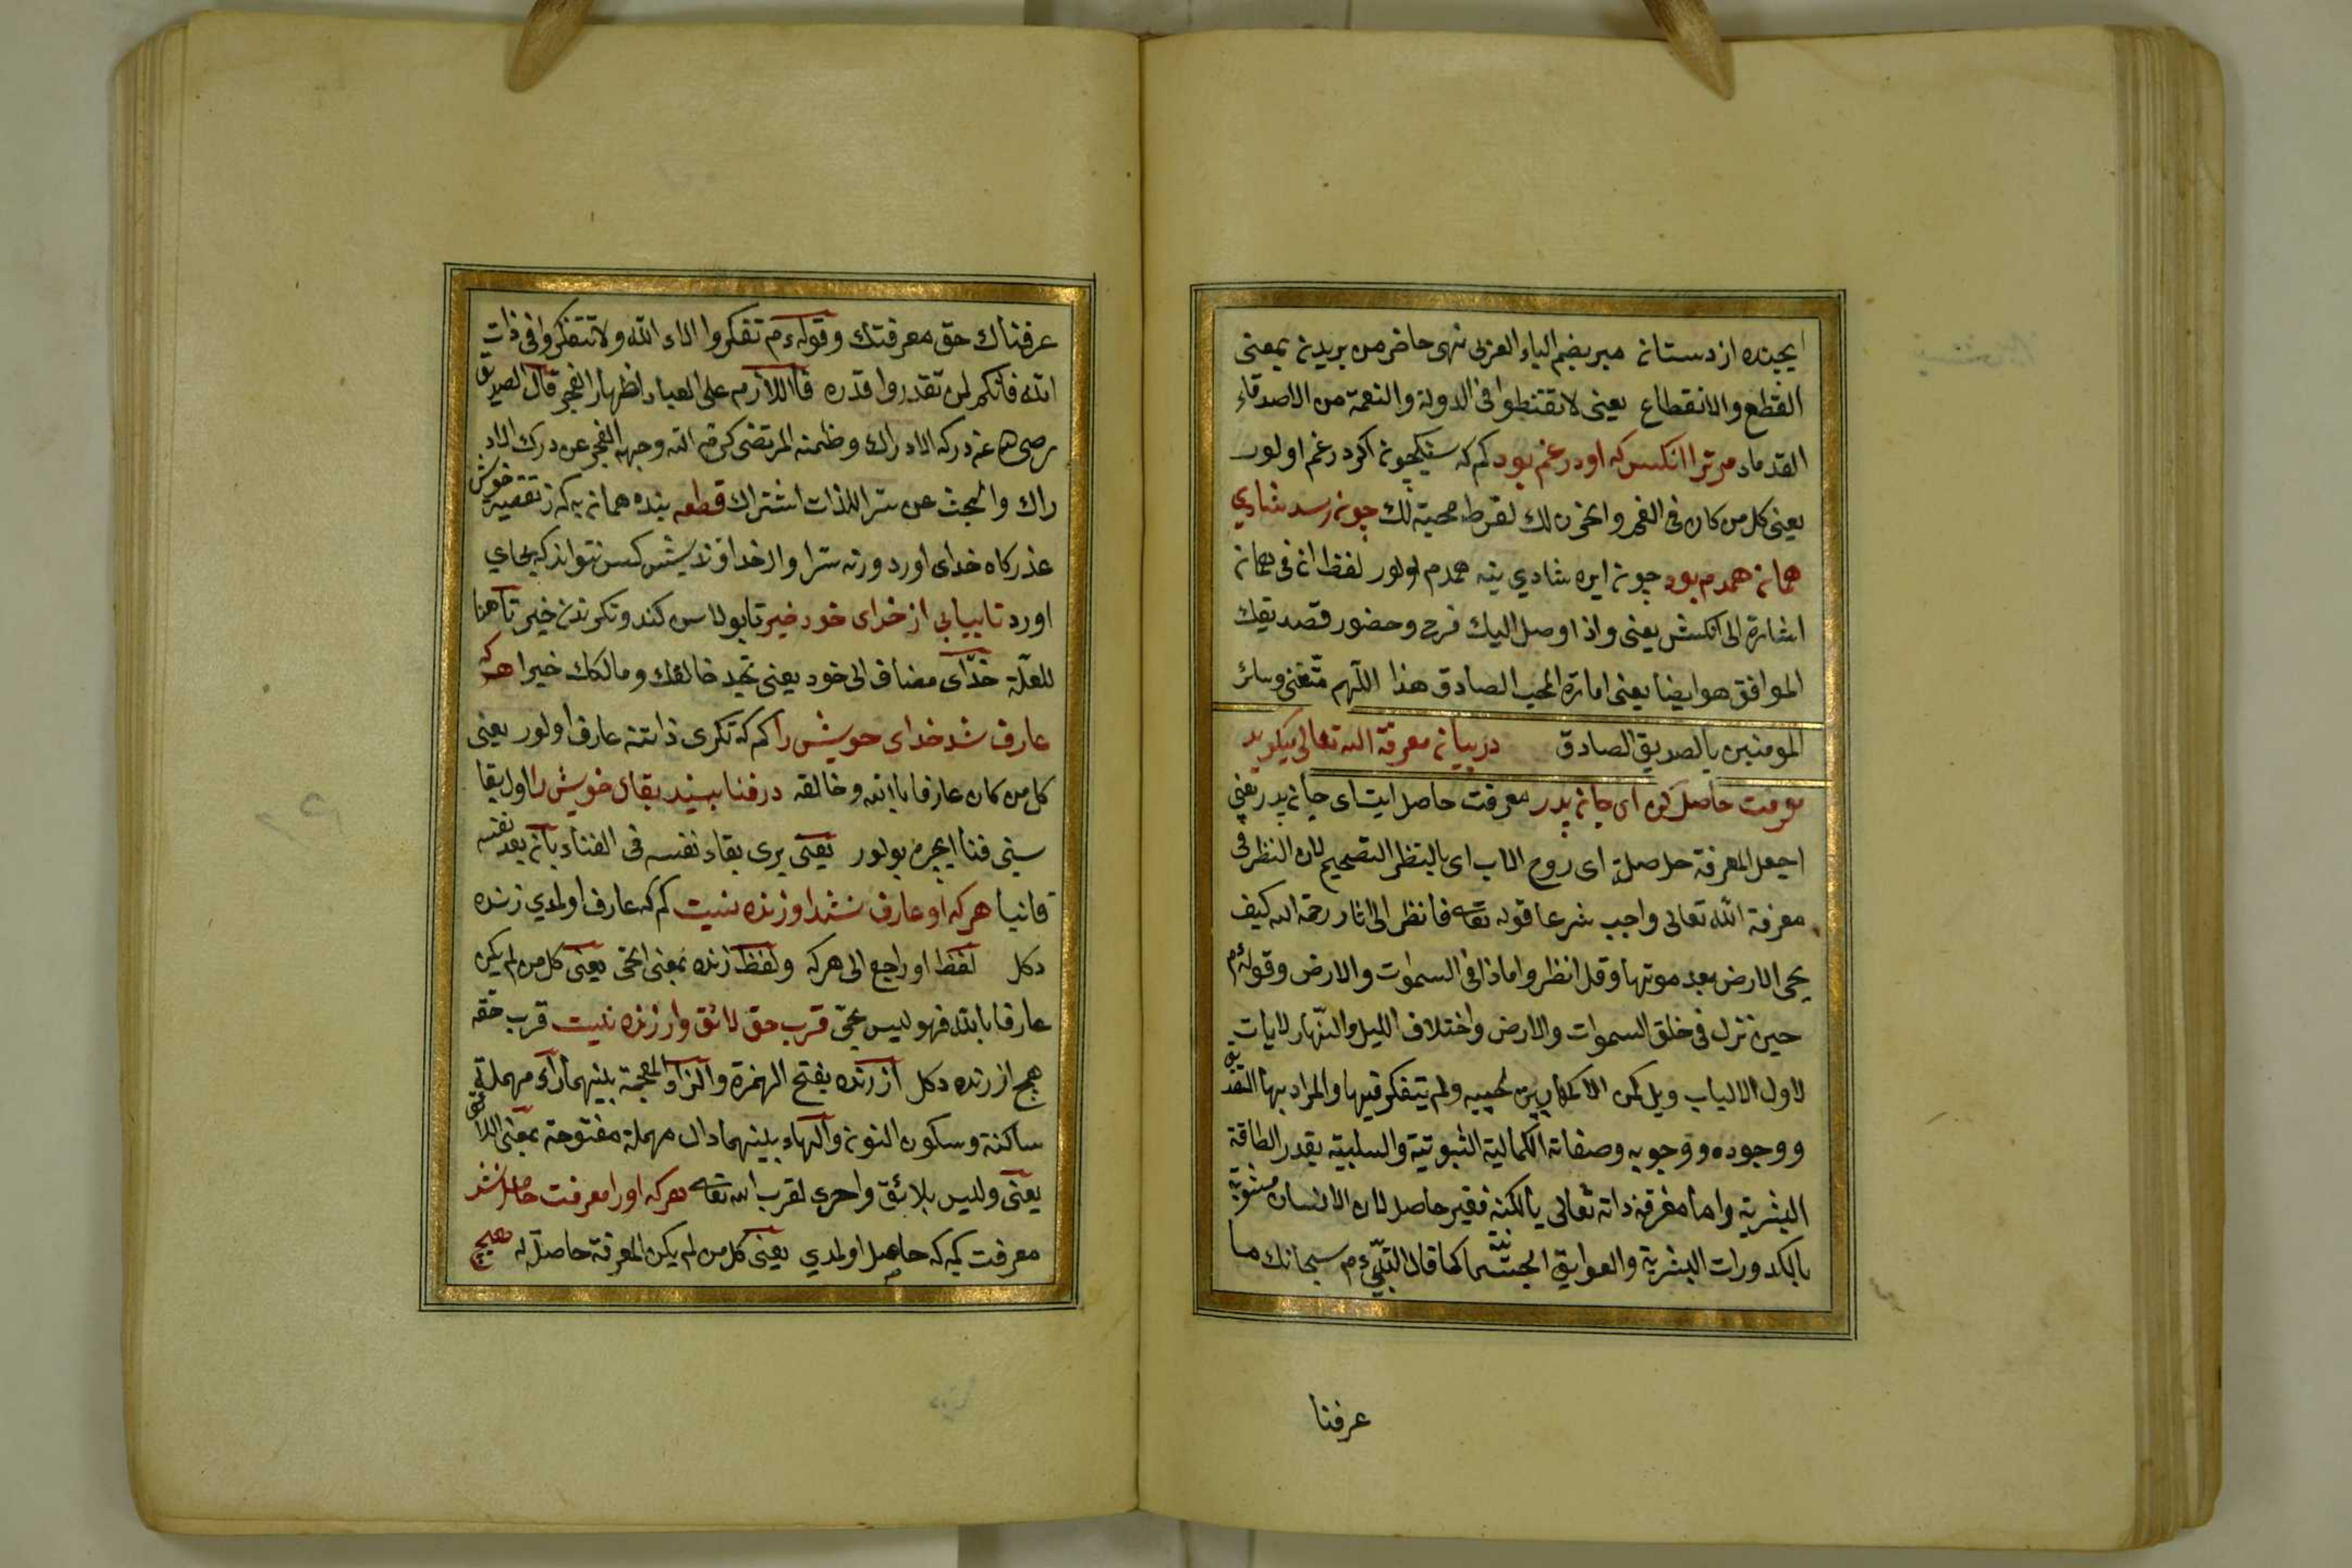 ايچنده از دستانه مبر بضم الباء العربى نهى حاضر من بريدن بمعنى
القطع والانقطاع يعنى لا تقنطوا فى الدولة والنعمة من الاصدقاء
القدماء مر ترا انكس كه او در غم بود كم كه سنكچون اكر در غم اولور
يعنى كل من كان فى الغم والحزن لك لفرط محبته لك چونه رسد شادي
همانه همدم بود چونه ايره شادي ينه همدم اولور لفظ ان فى همانه
اشارة الى انكس يعنى واذا وصل اليك فرح وحضور فصديقك
الموافق هو ايضا يعنى امارة المحب الصادق هذا اللهم متعنى وسائر
المومنين بالصديق الصادق در بيانه معرفة الله تعالى ميكويد
معرفت حاصل كن اى جانه پدر معرفت حاصل ايت اى جانه پدر يعنى
اجعل المعرفة حاصلة اى روح الاب اى بالنظر الصحيح لان النظر فى
معرفة الله تعالى واجب شرعا قوله تعا فانظر الى اثار رحمة الله كيف
يحى الارض بعد موتها وقل انظروا ماذا فى السموات والارض وقوله م
حين نزل فى خلق السموات والارض واختلاف الليل والنهار لايات
لاول الالباب ويل لمن لاكها بين لحييه ولم يتفكر فيها والمراد بها
ووجوده ووجوبه وصفاته الكمالية الثبوتية والسلبية بقدر الطاقة
البشرية واما معرفة ذاته تعالى بالكنه فغير حاصل لان الانسان
بالكدورات البشرية والعوايق كما قال النبى م سبحانك ما
عرفنا
عرفناك حق معرفتك وقوله م تفكروا الاء الله ولا تتفكروا فى ذات
الله فانكم لن تقدروا قدره فاللازم على العباد اظهار العجز قال الصديق
رضى الله عنه درك الادراك وضمنه المرتضى كرم الله وجهه العجز عن درك الاد
راك والبحث عن سر الذات اشتراك قطعه بنده همانه به كه ز تقصير خويش
عذر كاه خداى اورد ورنه سزاوار خداونديش كس نتواند كه بجاي
اورد تا بيابي از خداى خود خير تا بولاسن كندو تكرندن خير تا هنا
للعلة خداى مضاف الى خود يعنى تجد خالقك ومالكك خيرا هر كه
عارف شد خداى خويش را كم كه تكرى ذاتنه عارف اولور يعنى
كل من كان عارفا بالله وخالقه در فنا بيند بقاى خويش را اول بقا
سنى فنا ايچره بولور يعنى يرى بقاء نفسه فى الفناء بانه يعد نفسه
فانيا هر كه او عارف نشد او زنده نيست كم كه عارف اولمدي زنده
دكل لفظ او راجع الى هر كه ولفظ زنده بمعنى الحى يعنى كل من لم يكن
عارفا بالله فهو ليس بحى قرب حق لائق وارزنده نيست قرب حقه
هيچ ارزنده دكل ارزنده بفتح الهمزة والزاء المعجمة بينهما راء مهملة
ساكنة وسكون النون والهاء بينهما دال مهملة مفتوحة بمعنى اللائق
يعنى وليس بلائق واحرى لقرب الله تعا هر كه اورا معرفت حاصل نشد
معرفت كيمه كه حاصل اولمدي يعنى كل من لم يكن المعرفة حاصلة له هيچ